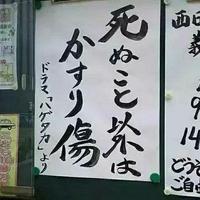 死ぬこと以外は
かすり傷
ドラマ「ハゲタカ」より
西
9
14
どうぞ
ご自由